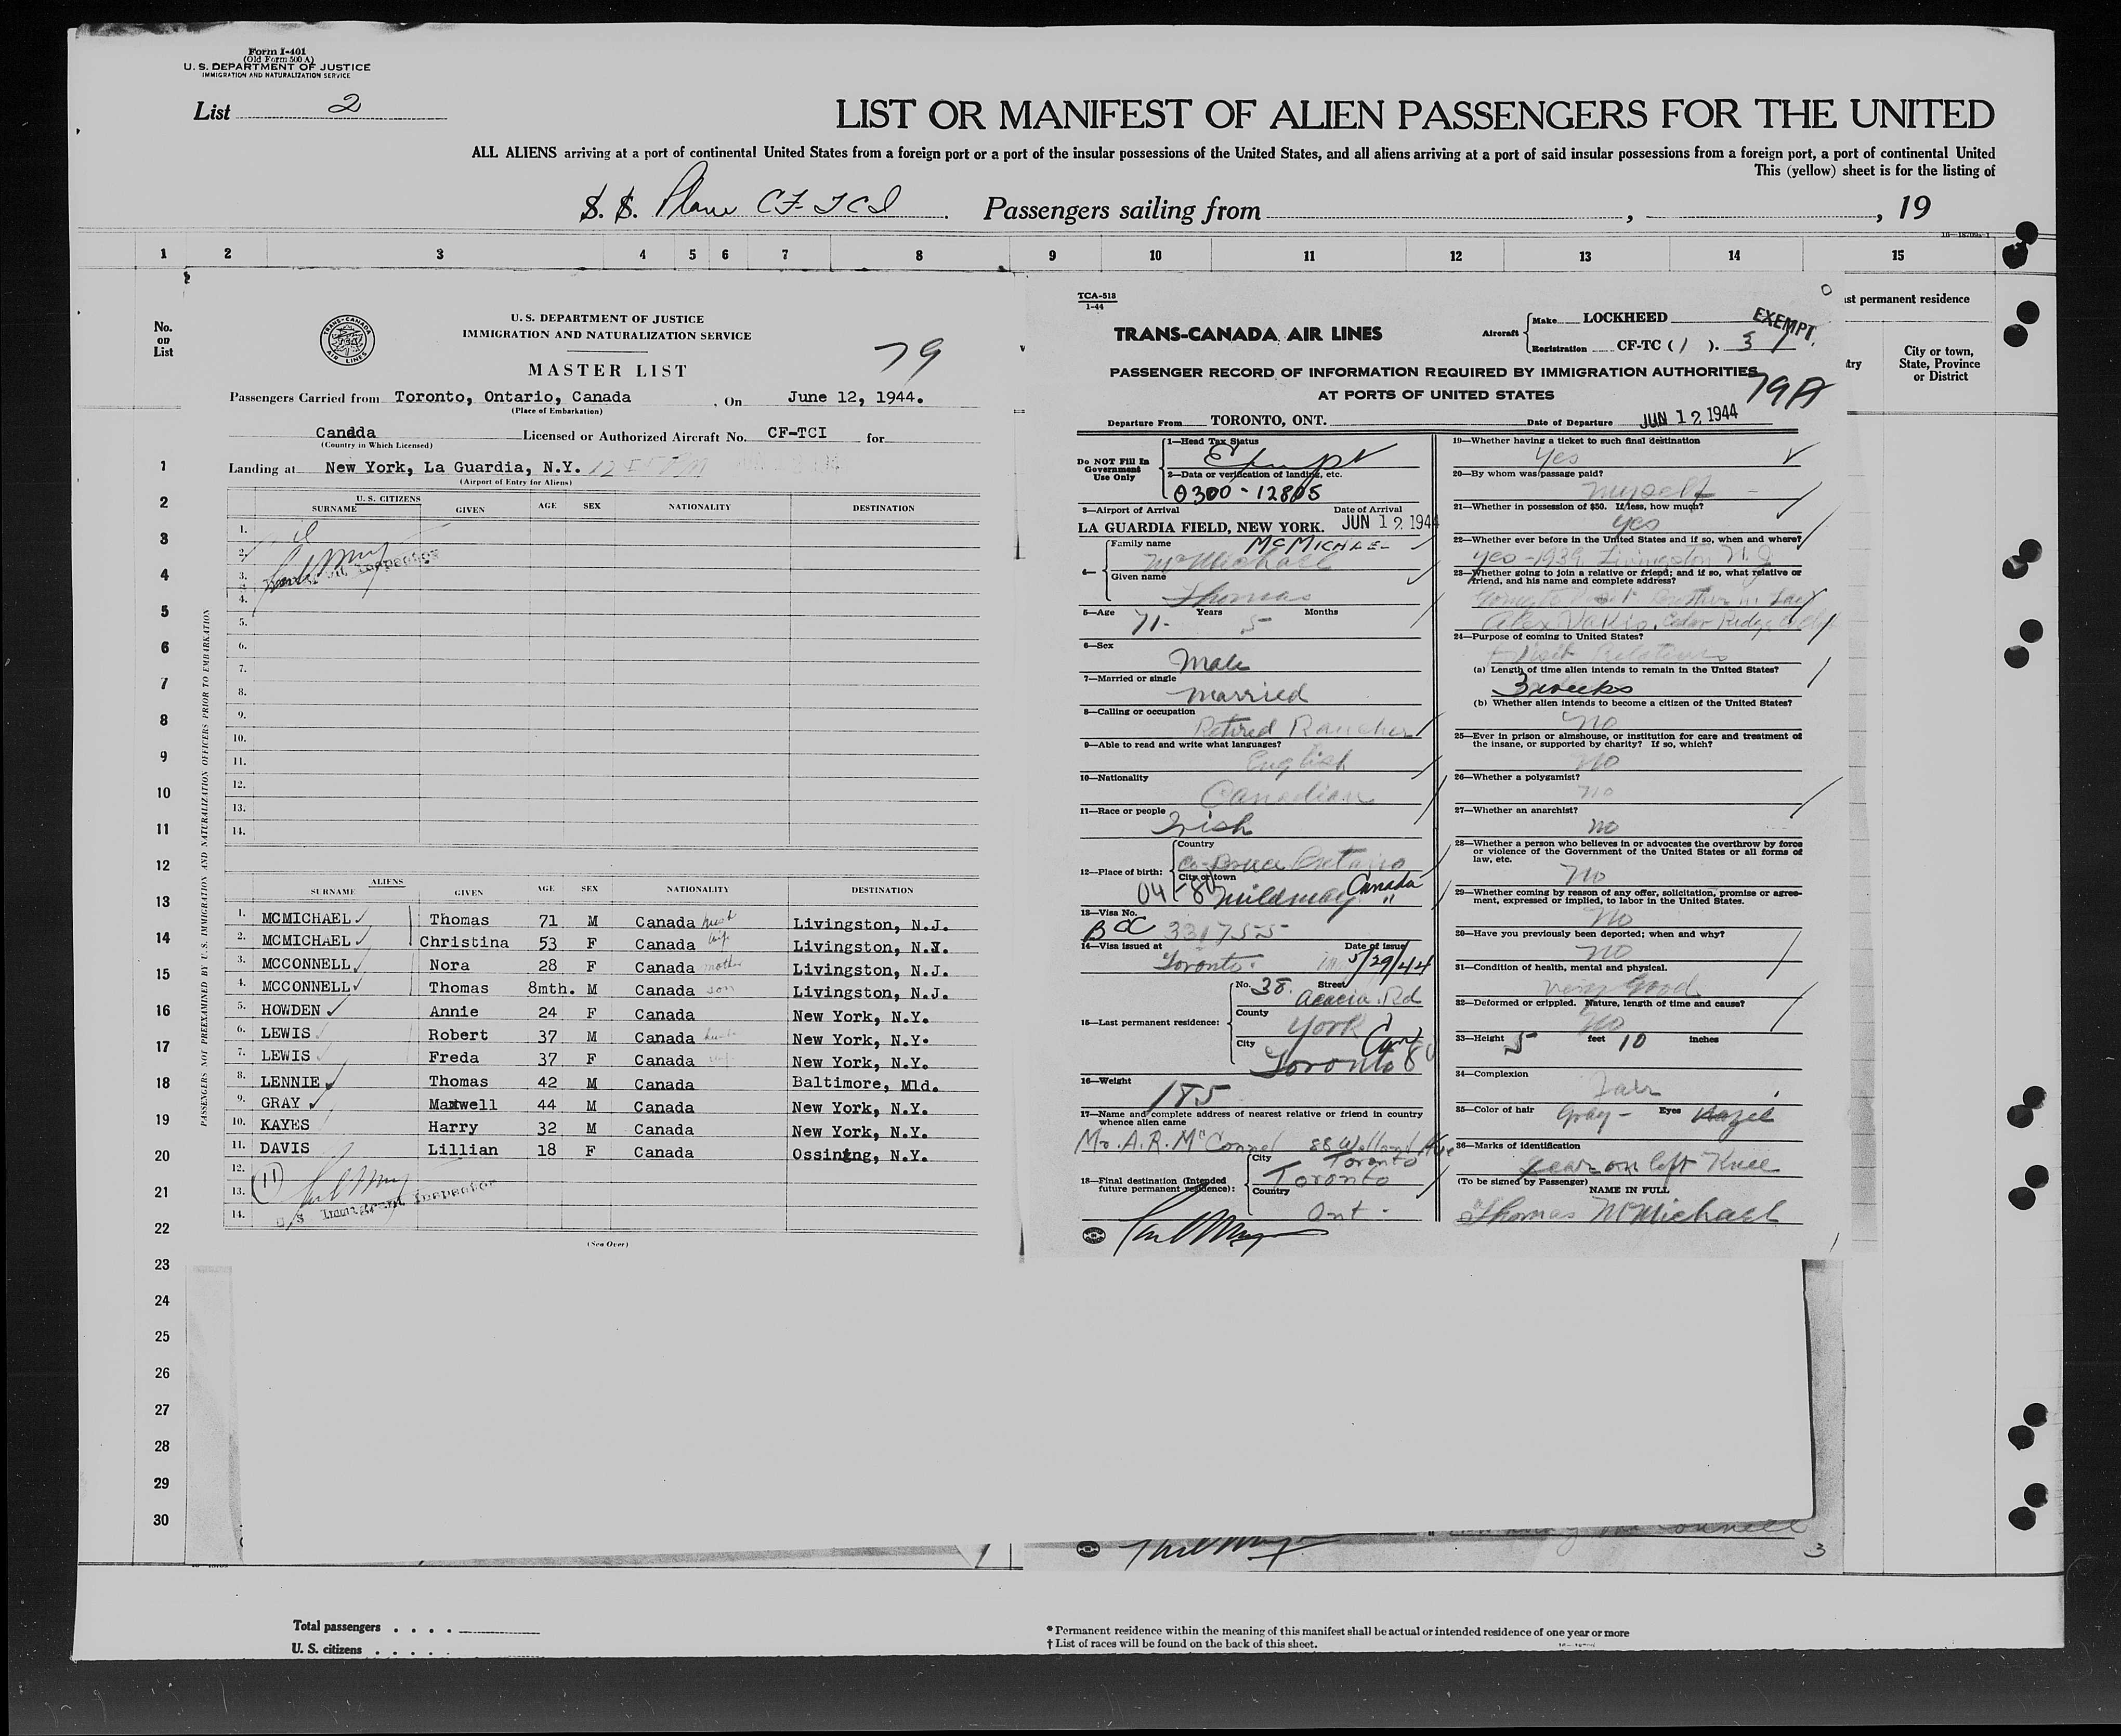 Form I-401
(Old Form 500 A)
U. S. DEPARTMENT OF JUSTICE
IMMIGRATION AND NATURALIZATION SERVICE
List 2
LIST OR MANIFEST OF ALIEN PASSENGERS FOR THE UNITED
ALL ALIENS arriving at a port of continental United States from a foreign port or a port of the insular possessions of the United States, and all aliens arriving at a port of said insular possessions from a foreign port, a port of continental United
This (yellow) sheet is for the listing of
S. S. Plane CF-TCI. Passengers sailing from , , 19
1 2 3 4 5 6 7 8 9 10 11 12 13 14 15
No. on List
TRANS-CANADA AIR LINES
U. S. DEPARTMENT OF JUSTICE
IMMIGRATION AND NATURALIZATION SERVICE
79
MASTER LIST
Passengers Carried from Toronto, Ontario, Canada , On June 12, 1944.
(Place of Embarkation)
Canada Licensed or Authorized Aircraft No. CF-TCI for
(Country in Which Licensed)
Landing at New York, La Guardia, N.Y.
(Airport of Entry for Aliens)
U. S. CITIZENS
SURNAME GIVEN AGE SEX NATIONALITY DESTINATION
1.
2.
3.
4.
5.
6.
7.
8.
9.
10.
11.
12.
13.
14.
Inspector
PASSENGERS NOT PREEXAMINED BY U. S. IMMIGRATION AND NATURALIZATION OFFICERS PRIOR TO EMBARKATION
ALIENS
SURNAME GIVEN AGE SEX NATIONALITY DESTINATION
1. MCMICHAEL Thomas 71 M Canada husb Livingston, N.J.
2. MCMICHAEL Christina 53 F Canada wife Livingston, N.J.
3. MCCONNELL Nora 28 F Canada mother Livingston, N.J.
4. MCCONNELL Thomas 8mth. M Canada son Livingston, N.J.
5. HOWDEN Annie 24 F Canada New York, N.Y.
6. LEWIS Robert 37 M Canada New York, N.Y.
7. LEWIS Freda 37 F Canada New York, N.Y.
8. LENNIE Thomas 42 M Canada Baltimore, Mld.
9. GRAY Maxwell 44 M Canada New York, N.Y.
10. KAYES Harry 32 M Canada New York, N.Y.
11. DAVIS Lillian 18 F Canada Ossining, N.Y.
12.
13. (11)
14.
U S Immigrant Inspector
(See Over)
1
2
3
4
5
6
7
8
9
10
11
12
13
14
15
16
17
18
19
20
21
22
23
24
25
26
27
28
29
30
TCA-518
1-44
TRANS-CANADA AIR LINES
Aircraft Make LOCKHEED
Registration CF-TC ( 1 ).
EXEMPT.
PASSENGER RECORD OF INFORMATION REQUIRED BY IMMIGRATION AUTHORITIES
AT PORTS OF UNITED STATES
79A
Departure From TORONTO, ONT. Date of Departure JUN 12 1944
Do NOT Fill In
Government
Use Only
1—Head Tax Status
2—Data or verification of landing, etc.
0300-12805
3—Airport of Arrival Date of Arrival
LA GUARDIA FIELD, NEW YORK. JUN 12 1944
4— Family name MCMICHAEL
McMichael
Given name
Thomas
5—Age Years Months
71. 5
6—Sex
Male
7—Married or single
married
8—Calling or occupation
Retired Rancher
9—Able to read and write what languages?
English
10—Nationality
Canadian
11—Race or people
Irish
12—Place of birth: Country
Co Bruce Ontario
City or town
Mildmay Canada
13—Visa No.
BC 331755
14—Visa issued at Date of issue
Toronto. 5/29/44
15—Last permanent residence: No. 38. Street Acacia Rd
County
York
City
Toronto
16—Weight
185
17—Name and complete address of nearest relative or friend in country
whence alien came
Mr. A. R. McConnel 88 Ave
Toronto
18—Final destination (Intended
future permanent residence): City
Toronto
Country
Ont.
19—Whether having a ticket to such final destination
Yes
20—By whom was passage paid?
myself
21—Whether in possession of $50. If less, how much?
yes
22—Whether ever before in the United States and if so, when and where?
yes - 1939 Livingston N.J
23—Whether going to join a relative or friend; and if so, what relative or
friend, and his name and complete address?
Brother in law
Alex Cedar Ridge
24—Purpose of coming to United States?
Visit Relatives
(a) Length of time alien intends to remain in the United States?
3 weeks
(b) Whether alien intends to become a citizen of the United States?
no
25—Ever in prison or almshouse, or institution for care and treatment of
the insane, or supported by charity? If so, which?
no
26—Whether a polygamist?
no
27—Whether an anarchist?
no
28—Whether a person who believes in or advocates the overthrow by force
or violence of the Government of the United States or all forms of
law, etc.
no
29—Whether coming by reason of any offer, solicitation, promise or agree-
ment, expressed or implied, to labor in the United States.
no
30—Have you previously been deported; when and why?
no
31—Condition of health, mental and physical.
very Good
32—Deformed or crippled. Nature, length of time and cause?
no
33—Height 5 feet 10 inches
34—Complexion
Fair
35—Color of hair Gray Eyes Hazel
36—Marks of identification
scar on left Knee
(To be signed by Passenger)
NAME IN FULL
Thomas McMichael
3
st permanent residence
try
City or town,
State, Province
or District
Total passengers . . . .
U. S. citizens . . . . .
* Permanent residence within the meaning of this manifest shall be actual or intended residence of one year or more
† List of races will be found on the back of this sheet.